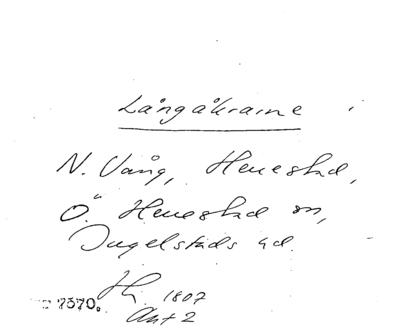 Långåkrarne
N. Vång, Herrestad,
Ö. Herrestad sn,
Ingelstads hd.
1807
7570. Akt 2